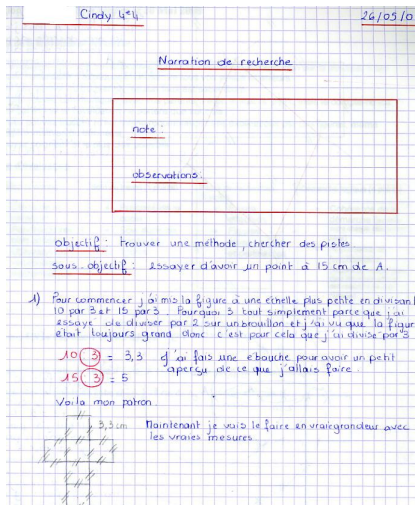 Cindy 4e4
26/05/0
Narration de recherche
note :
observations :
objectif : trouver une méthode, chercher des pistes.
sous-objectif : essayer d'avoir un point à 15 cm de A.
1) Pour commencer j'ai mis la figure à une échelle plus petite en divisant
10 par 3 et 15 par 3. Pourquoi 3 tout simplement parce que j'ai
essayé de diviser par 2 sur un brouillon et j'ai vu que la figur
était toujours grand donc c'est pour cela que j'ai divisé par 3
10 3 = 3,3 j'ai fais une ébauche pour avoir un petit
aperçu de ce que j'allais faire.
15 3 = 5
Voila mon patron.
3,3cm Maintenant je vais le faire en vraie grandeur avec
les vraies mesures